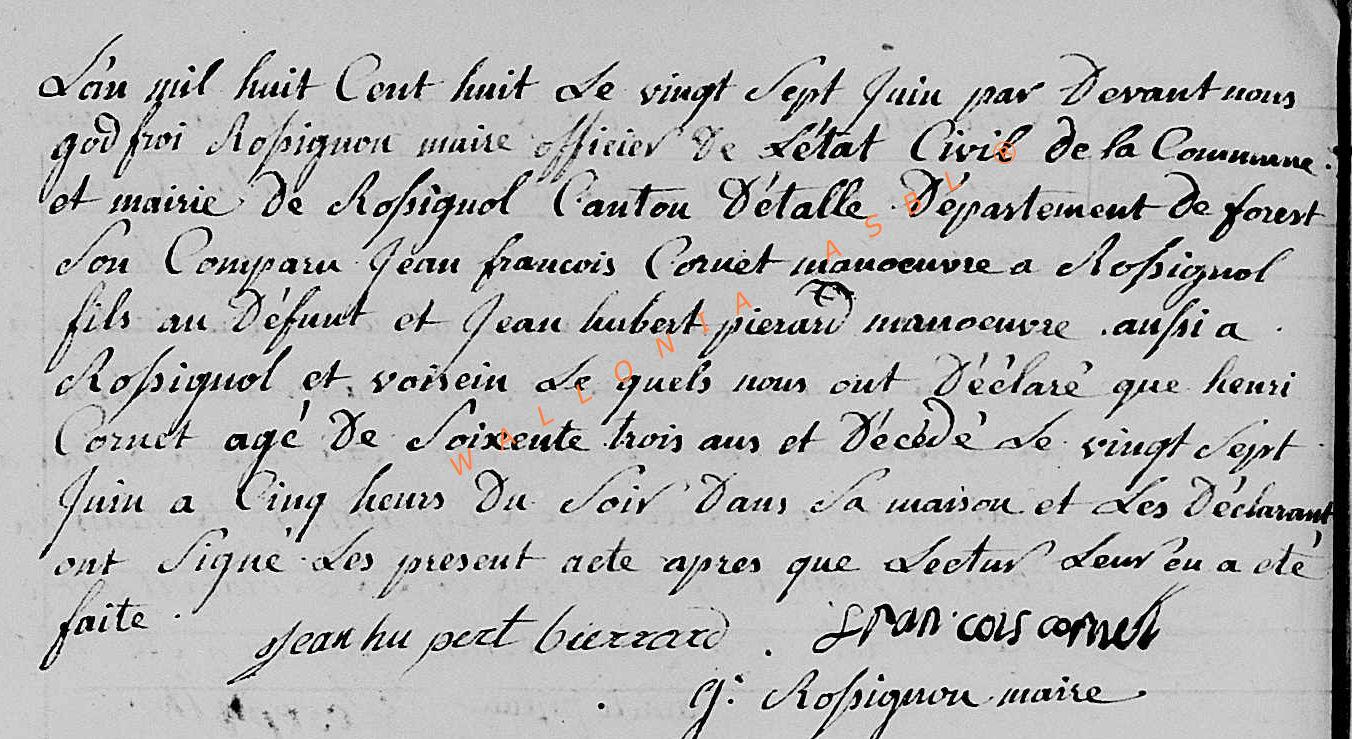 L'an mil huit Cent huit Le vingt Sept Juin par Devant nous
godfroi Rossignon maire officier De L'état Civil de la Commune
et mairie De Rossignol Canton D'étalle Département De forest
Son Comparu Jean francois Cornet manoeuvre a Rossignol
fils au Défunt et Jean hubert pierard manoeuvre aussi a
Rossignol et voisein Le quels nous ont Déclaré que henri
Cornet agé De Soixente trois ans et Décédé Le vingt Sept
Juin a Cinq heurs Du Soir Dans Sa maison et Les Déclarant
ont Signé Les present acte apres que Lectur Leur en a été
faite .
Jean hu pert bierrard . francois cornet
g: Rossignon maire
WALLONIA ASBL ®